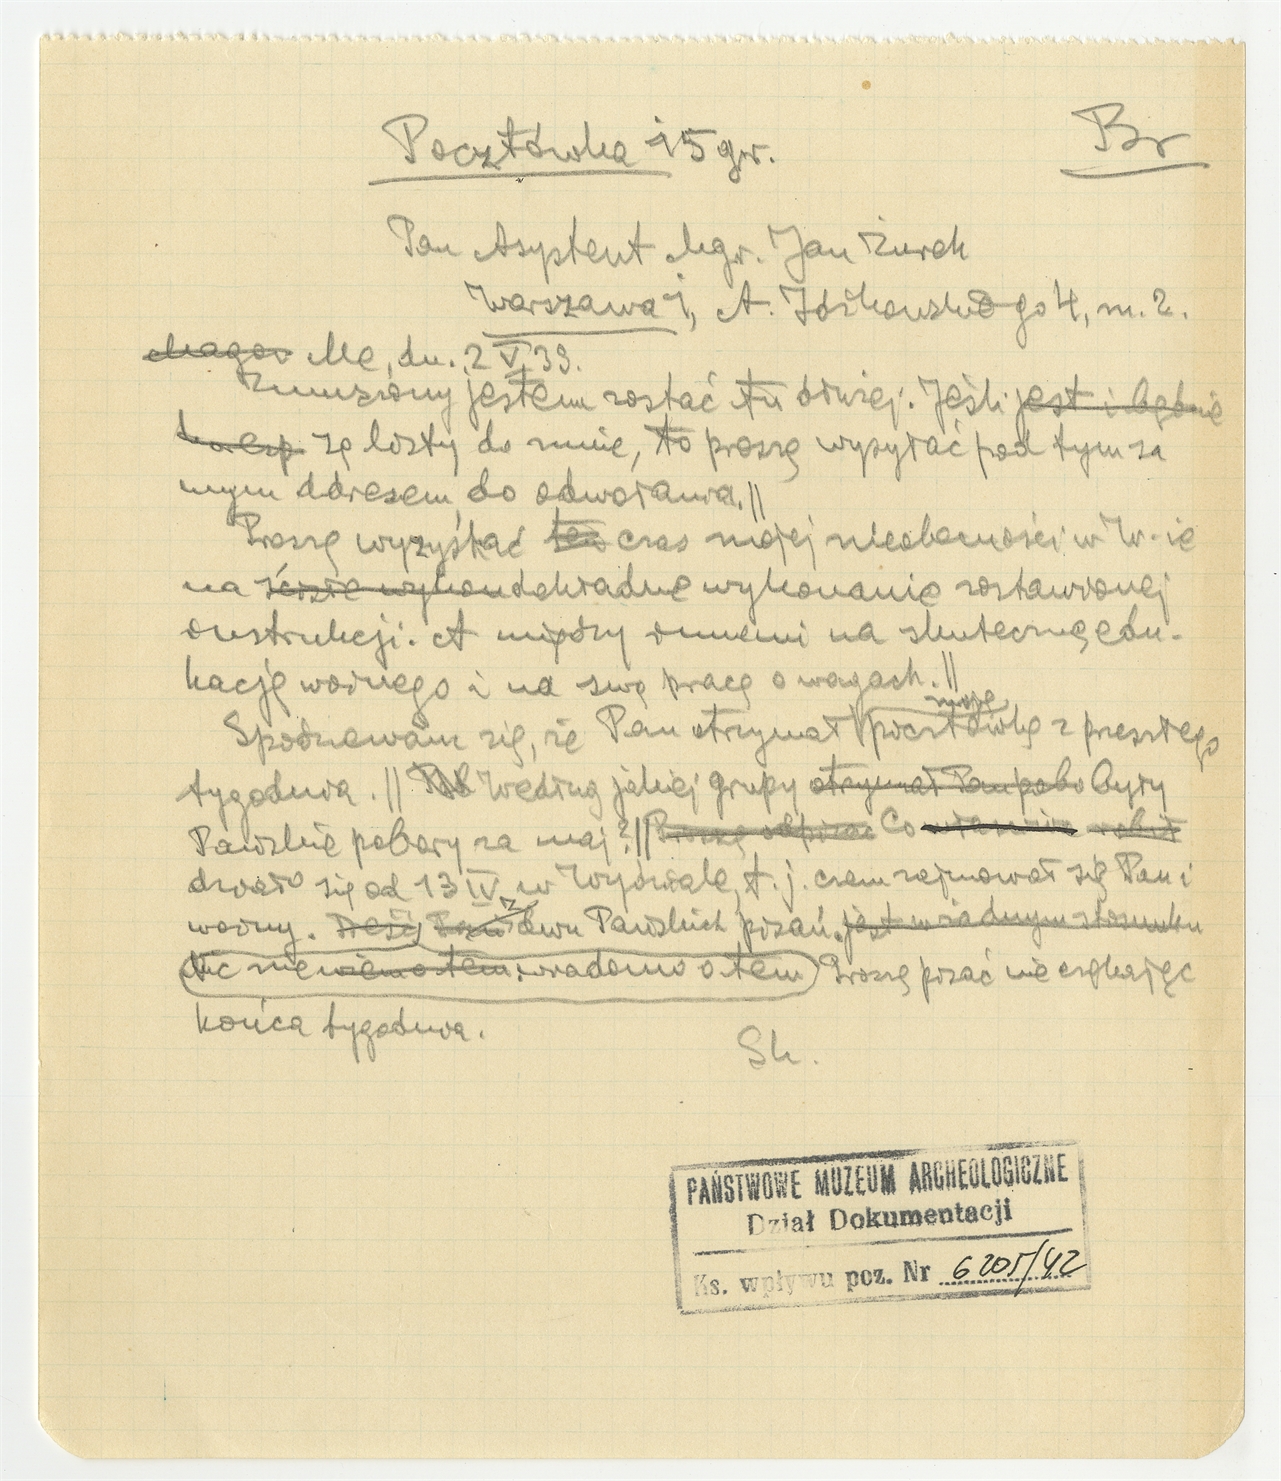 Pocztówka 15 gr.
Br
Pan Asystent Mgr. Jan Żurek
Warszawa 1, A. Żółkowskiego 4, m. 2.
Me, dn. 2 V 39.
Zmuszony jestem zostać tu dłużej. Jeśli jest i będzie
są listy do mnie, to proszę wysyłać pod tym sa
mym adresem do odwołania. ||
Proszę wyzyskać ten czas mojej nieobecności w W-ie
na ścisłe wykon dokładne wykonanie zostawionej
instrukcji. A między innemi na skuteczną edu-
kację woźnego i na swą pracę o wagach. ||
moją
Spodziewam się, że Pan otrzymał pocztówkę z przeszłego
tygodnia. || Według jakiej grupy otrzymał Pan pobo były
Pańskie pobory za maj? || Proszę odpisać Co właściwie robił
działo się od 13 IV w Wydziale, t. j. czem zajmował się Pan i
woźny. Z dwu Pańskich pisań. jest w żadnym stosunku
Nic nie wiem o tem. wiadomo o tem Proszę pisać nie czekając
końca tygodnia.
Sk.
PAŃSTWOWE MUZEUM ARCHEOLOGICZNE
Dział Dokumentacji
Ks. wpływu poz. Nr 6205/42